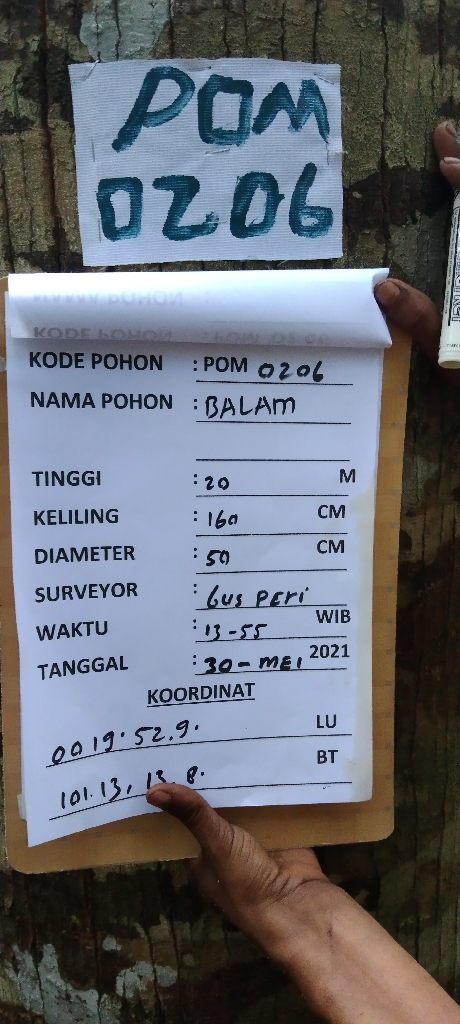 POM
0206
KODE POHON : POM 0206
NAMA POHON : BALAM
TINGGI : 20 M
KELILING : 160 CM
DIAMETER : 50 CM
SURVEYOR : Gus PERI
WAKTU : 13-55 WIB
TANGGAL : 30-MEI 2021
KOORDINAT
0019.52.9. LU
101.13.13.8. BT